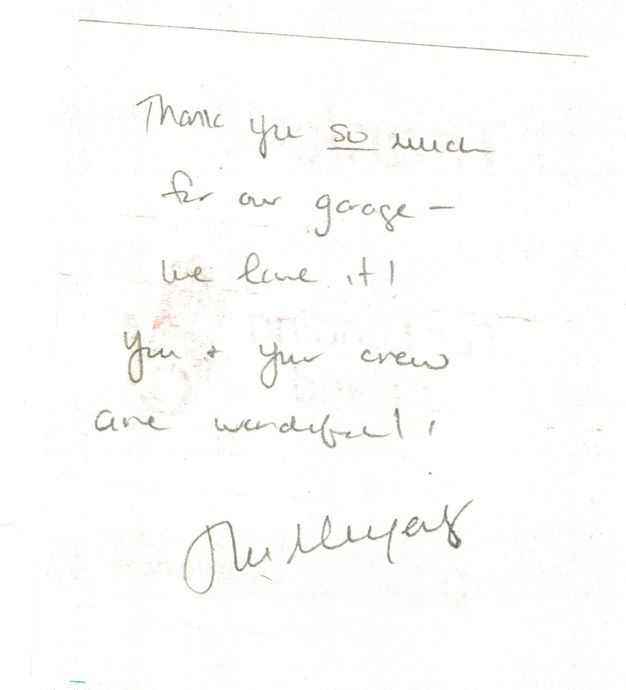 Thank you so much
for our garage –
we love it!
You + your crew
are wonderful!
The Meyers